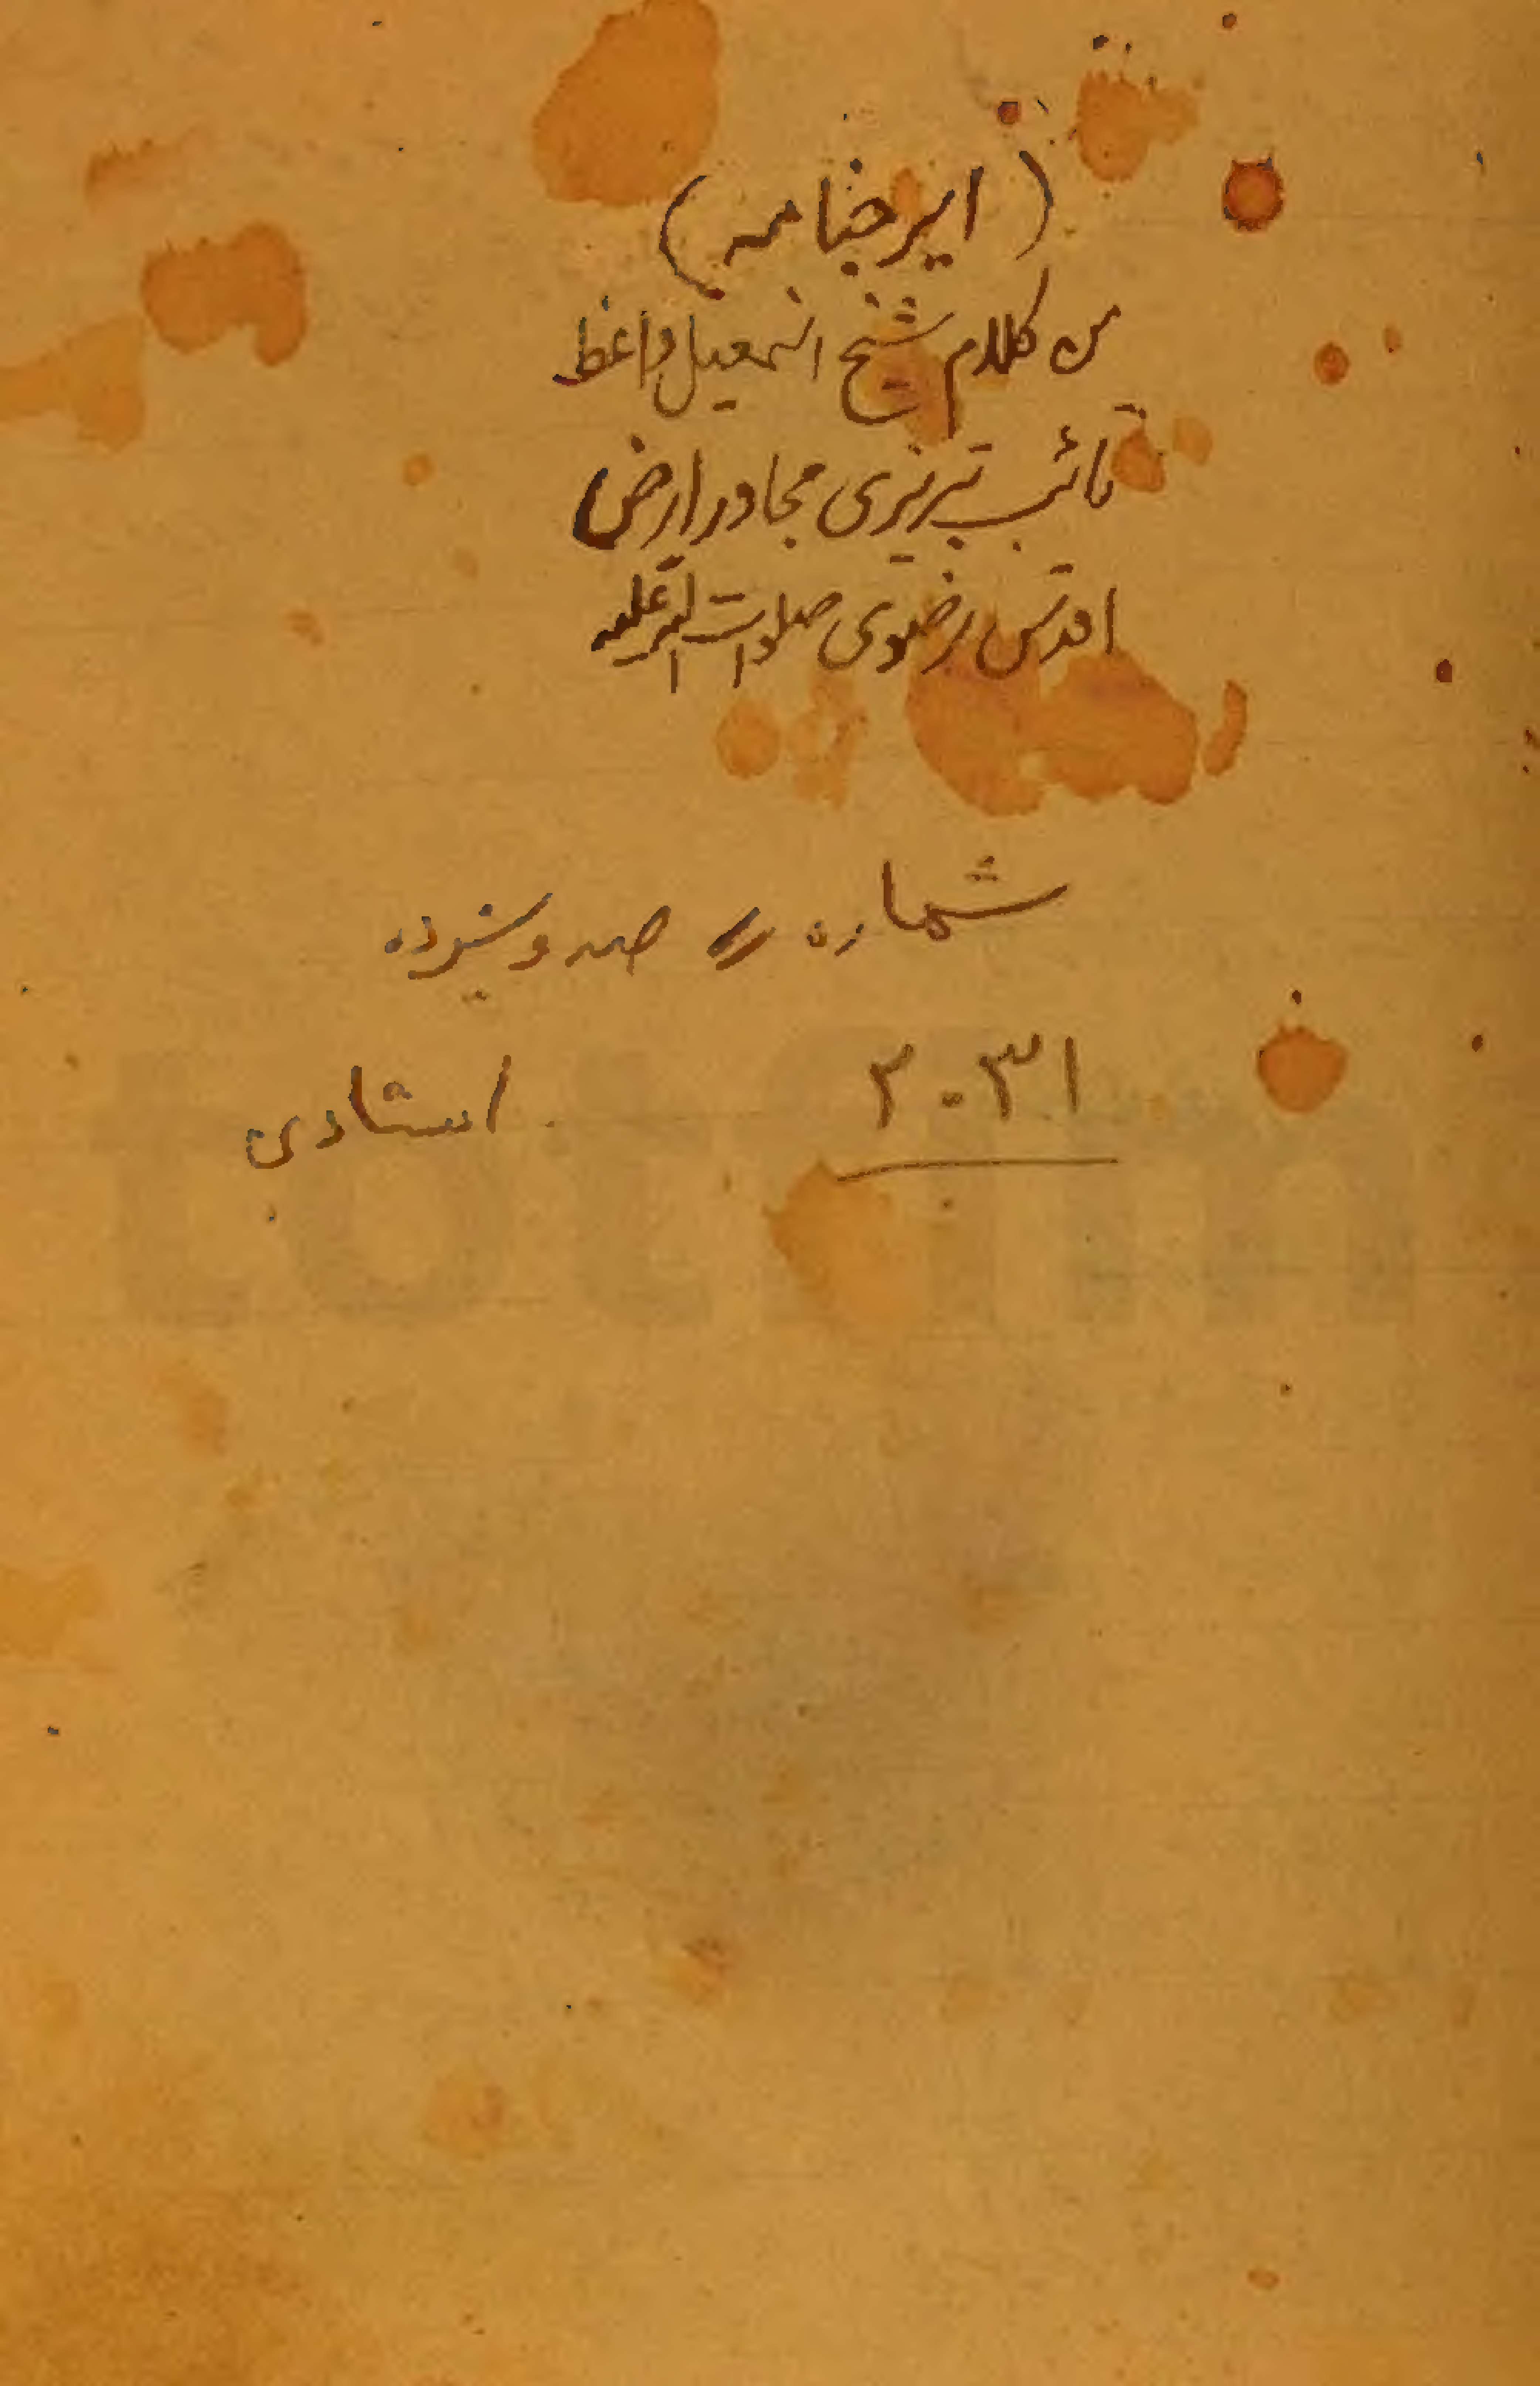 ( ایرجنامه )
من کلام شیخ اسمعیل واعظ
تائب تبریزی مجاور ارض
اقدس رضوی صلوات الله علیه
شماره صد و سیزده
۲۰۳۱
استادی